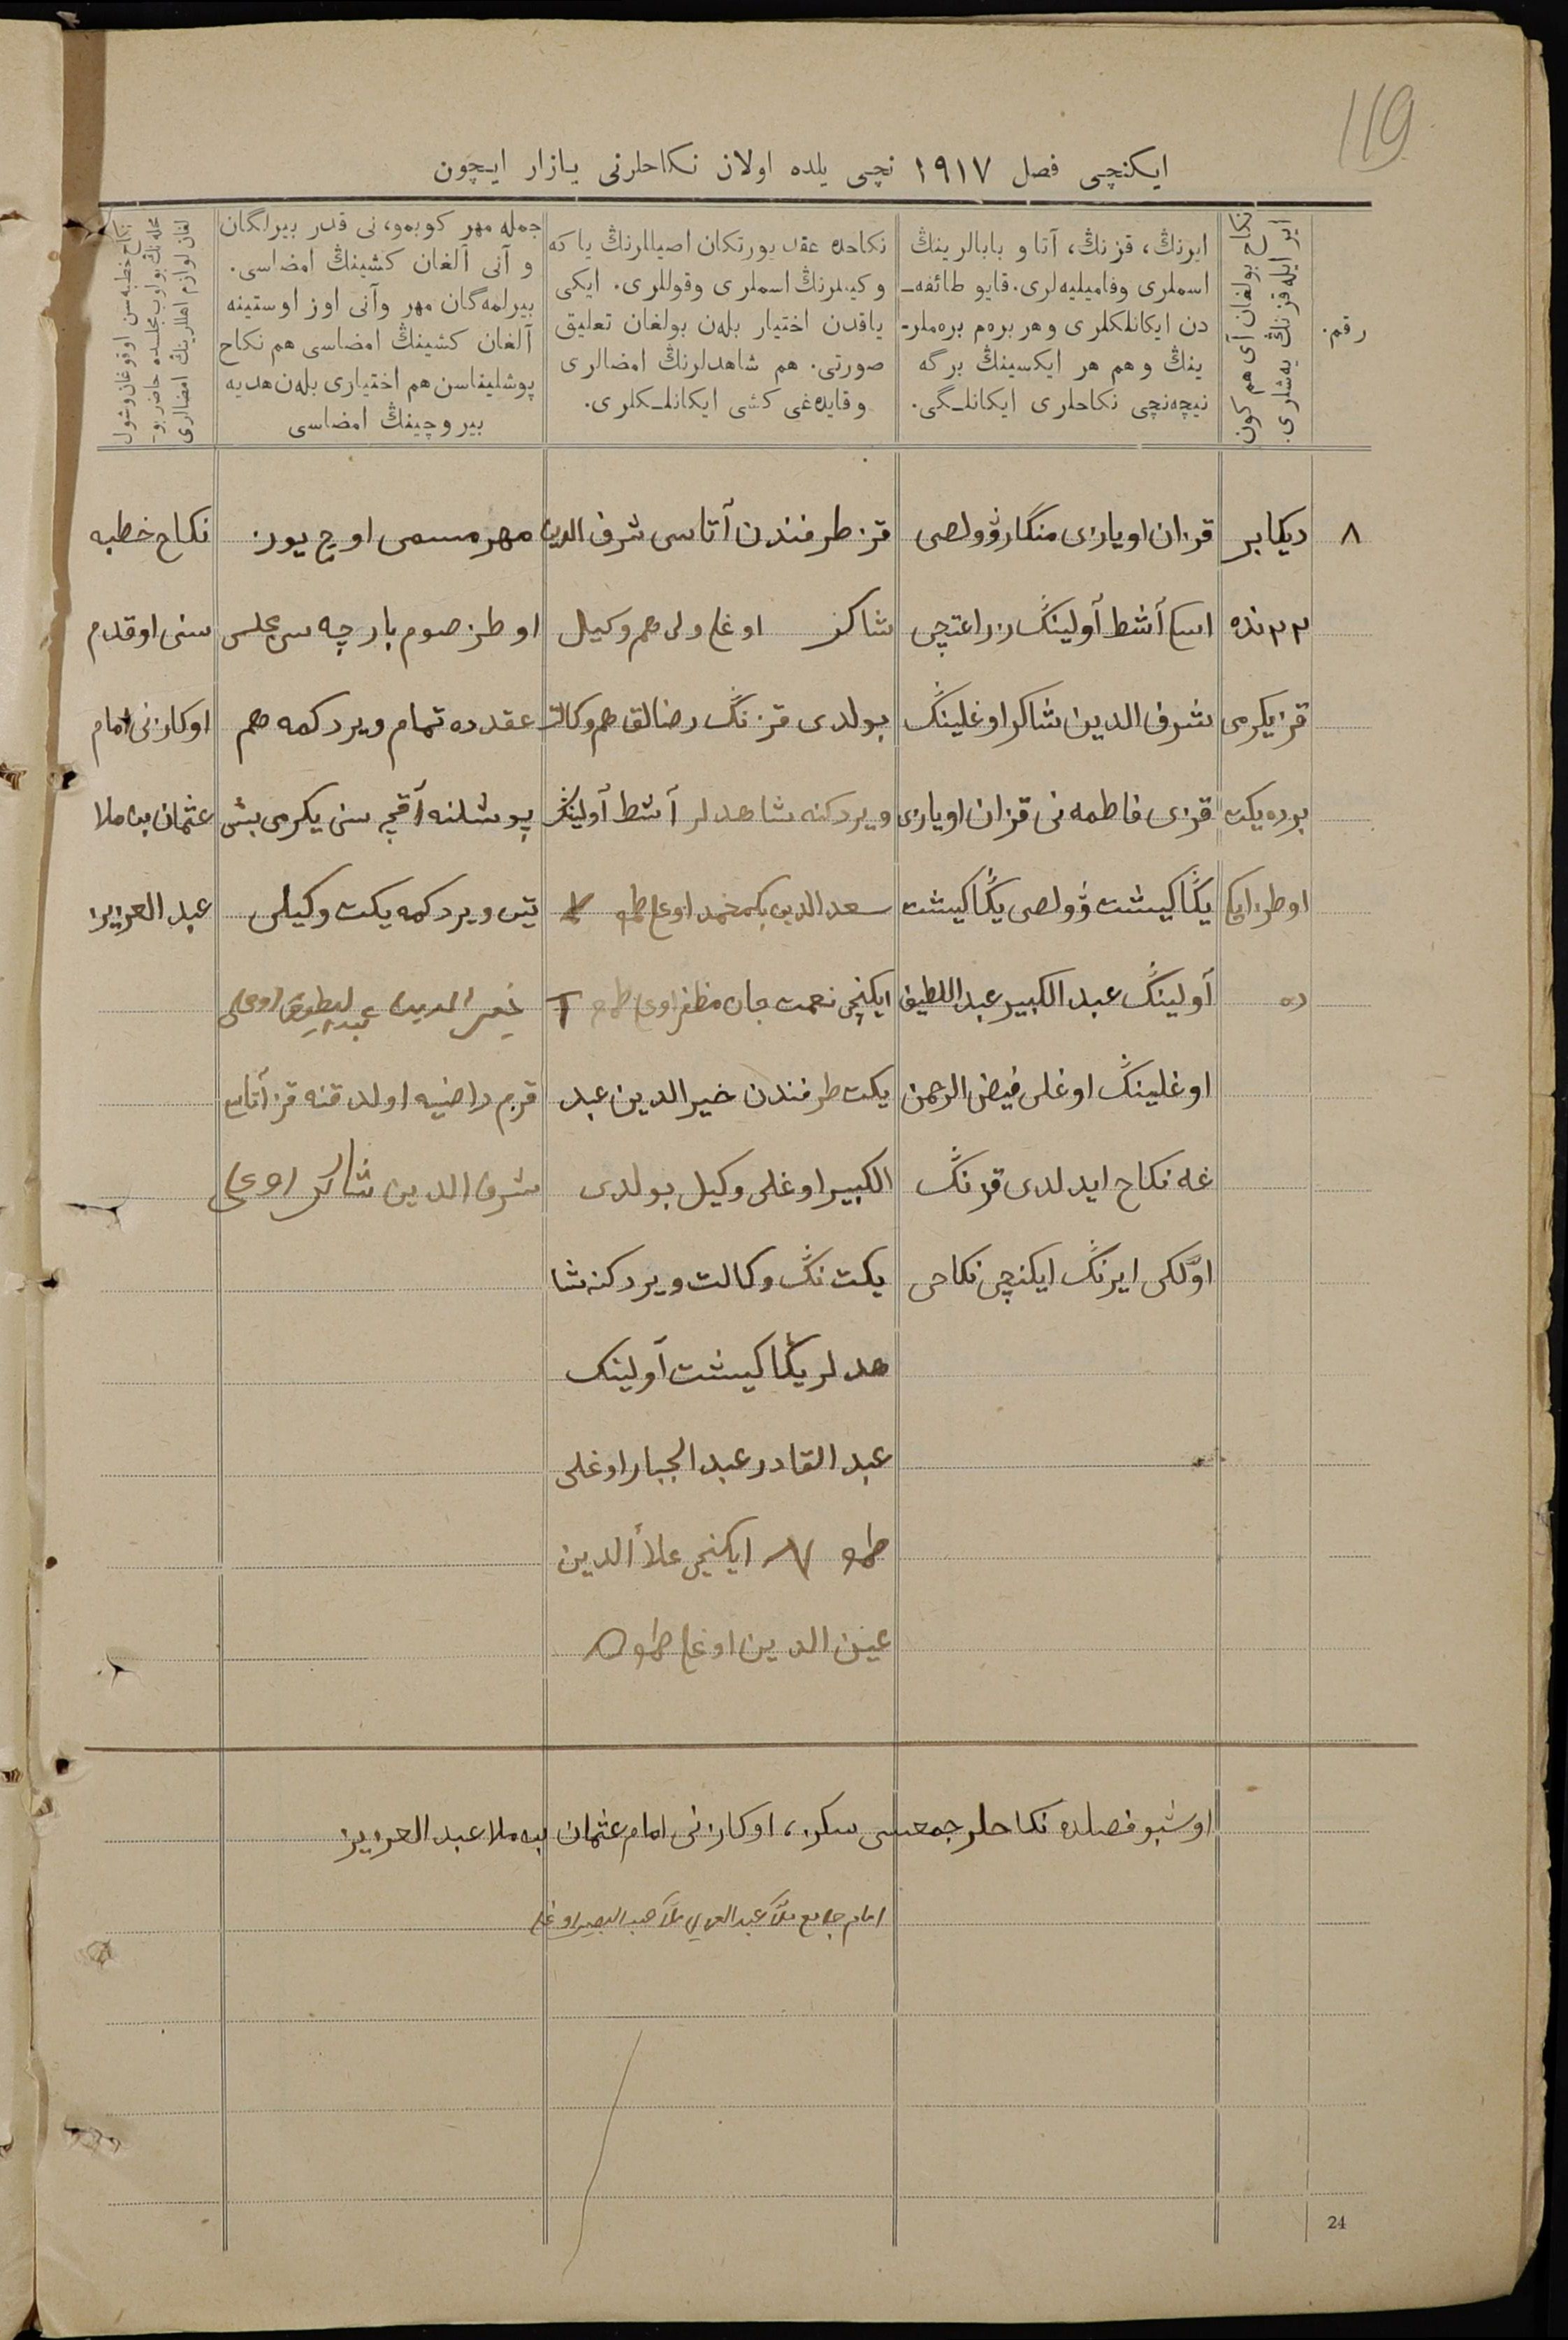 119
ایکنچی فصل ۱۹۱۷ نچی یلده اولان نکاحلرنی یازار ایچون
رقم.
نکاح بولغان آی هم کون
ایر ایله قزنڭ یه‌شلری.
ایرنڭ، قزنڭ، آتا و بابالرینڭ
اسملری وفامیلیه‌لری. قایو طائفه‌ـ
دن ایکانلکلری وهر بره‌م بره‌ملرـ
ینڭ وهم هر ایکسینڭ برگه
نیچه‌نچی نکاحلری ایکانلـگی.
نکاحده عقد یورتکان اصیللرنڭ یاکه
وکیللرنڭ اسملری وقوللری. ایکی
یاقدن اختیار بله‌ن بولغان تعلیق
صورتی. هم شاهدلرنڭ امضالری
وقایده‌غی کشی ایکانلـکلری.
جمله مهر کوبمو، نی قدر بیرلگان
و آنی آلغان کشینڭ امضاسی.
بیرلمه‌گان مهر وآنی اوز اوستینه
آلغان کشینڭ امضاسی هم نکاح
پوشلیناسن هم اختیاری بله‌ن هدیه
بیروچینڭ امضاسی
نکاح خطبه‌سن اوقوغان وشول
محله‌نڭ بولوب مجلسده حاضر بوـ
لغان لوازم اهللرینڭ امضالری
۸
دیکابر
۲۲ نده
قز یکرمی
برده یکت
اوطز ایکی
ده
قزان اویازی منگار ۋولصی
اسکی آشط آولینڭ زراعتچی
شرف الدین شاکر اوغلینڭ
قزی فاطمه نی قزان اویازی
یڭا کیشت ۋولصی یڭا کیشت
آولینڭ عبد الکبیر عبد اللطیف
اوغلینڭ اوغلی فیض الرحمن
غه نکاح ایدلدی قزنڭ
اوّلکی ایرنڭ ایکنچی نکاحی
قز طرفندن آتاسی شرف الدین
شاکر اوغلی ولی هم وکیل
بولدی قزنڭ رضالق هم وکالت
ویردکنه شاهدلر آشط آولینڭ
سعد الدین بکمحمد اوغلی طمغه
ایکنچی نعمت جان مظفر اوغلی طمغه T
یکت طرفندن خیر الدین عبد
الکبیر اوغلی وکیل بولدی
یکت نڭ وکالت ویردکنه شا
هدلر یڭا کیشت آولینڭ
عبد القادر عبد الجبار اوغلی
طمغه ایکنچی علاٴالدین
عین الدین اوغلی طمغه
مهر مسمی اوچ یوز
اوطز صوم بارچه سی مجلس
عقدده تمام ویردکمه هم
پوشلنه آقچه سنی یکرمی بش
تین ویردکمه یکت وکیلی
خیر الدین عبد اللطیف اوغلی
قزم راضیه اولدقنه قز آتاسی
شرف الدین شاکر اوغلی
نکاح خطبه
سنی اوقدم
اوکازنی امام
عثمان بن ملا
عبد العزیز
اوشبو فصلده نکاحلر جمعسی سکز، اوکازنی امام عثمان بن ملا عبد العزیز
امام جامع ملا عبد العزیز ملا عبد البصیر اوغلی
24